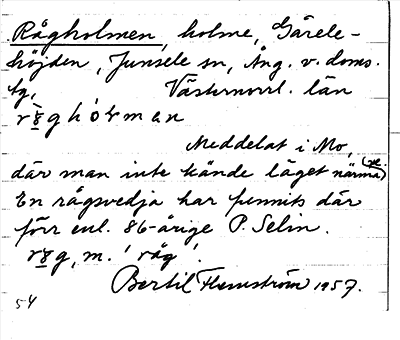 Rågholmen, holme, Gårele-
höjden, Junsele sn, Ång. v. doms.
tg, Västernorrl. län
Meddelat i Mo,
där man inte kände läget närma(re.)
En rågsvedja har funnits där
förr enl. 86-årige P. Selin.
m. 'råg'.
Bertil Flemström 1957.
54